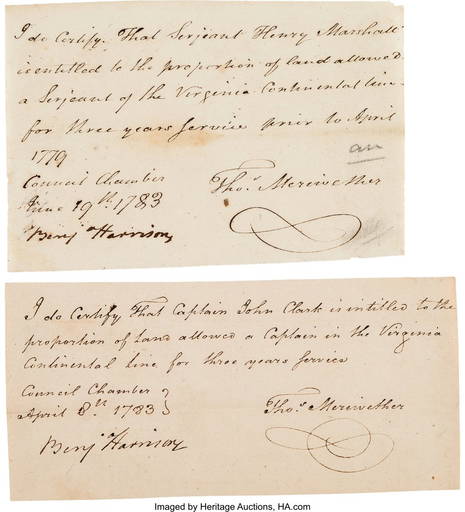 I do Certify That Serjeant Henry Marshall
is entitled to the proportion of land allowed
a Serjeant of the Virginia Continental line
for three years Service prior to April
1779
Council Chamber
June 19th. 1783
Thos. Meriwether
Benj Harrison
I do Certify That Captain John Clark is intitled to the
proportion of Land allowed a Captain in the Virginia
Continental line for three years Service
Council Chamber
April 8th. 1783
Thos. Meriwether
Benj Harrison
Imaged by Heritage Auctions, HA.com